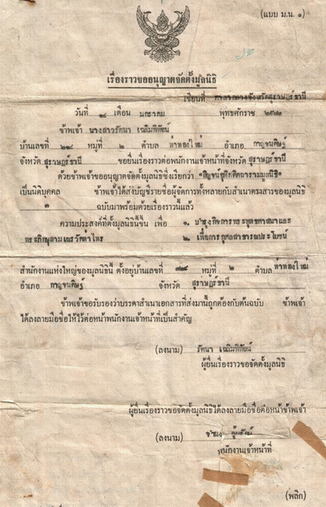 (แบบ ม.น. ๑)
เรื่องราวขออนุญาตจัดตั้งมูลนิธิ
เขียนที่ ศาลากลางจังหวัดสุราษฎร์ธานี
วันที่ เดือน มกราคม พุทธศักราช
ข้าพเจ้า นางสาวรัตนา เฉลิมพิพัฒน์
บ้านเลขที่ หมู่ที่ ๒ ตำบล ท่าทองใหม่ อำเภอ กาญจนดิษฐ์
จังหวัด สุราษฎร์ธานี ขอยื่นเรื่องราวต่อพนักงานเจ้าหน้าที่จังหวัด สุราษฎร์ธานี
ด้วยข้าพเจ้าขออนุญาตจัดตั้งมูลนิธิซึ่งเรียกว่า
เป็นนิติบุคคล ข้าพเจ้าได้ส่งบัญชีรายชื่อผู้จัดการทั้งหลายกับสำเนาตราสารของมูลนิธิ
ฉบับมาพร้อมด้วยเรื่องราวนี้แล้ว
ความประสงค์ที่ตั้งมูลนิธินี้ขึ้น เพื่อ ๑. บำรุงกิจการพระพุทธศาสนาและ
๒. เพื่อการกุศลสาธารณประโยชน์
สำนักงานแห่งใหญ่ของมูลนิธินี้ ตั้งอยู่บ้านเลขที่ หมู่ที่ ๒ ตำบล ท่าทองใหม่
อำเภอ กาญจนดิษฐ์ จังหวัด สุราษฎร์ธานี
ข้าพเจ้าขอรับรองว่าบรรดาสำเนาเอกสารที่ส่งมานี้ถูกต้องกับต้นฉบับ ข้าพเจ้า
ได้ลงลายมือชื่อให้ไว้ต่อหน้าพนักงานเจ้าหน้าที่เป็นสำคัญ
(ลงนาม) รัตนา เฉลิมพิพัฒน์
ผู้ยื่นเรื่องราวขอจัดตั้งมูลนิธิ
ผู้ยื่นเรื่องราวขอจัดตั้งมูลนิธิได้ลงลายมือชื่อต่อหน้าข้าพเจ้า
(ลงนาม)
พนักงานเจ้าหน้าที่
(พลิก)